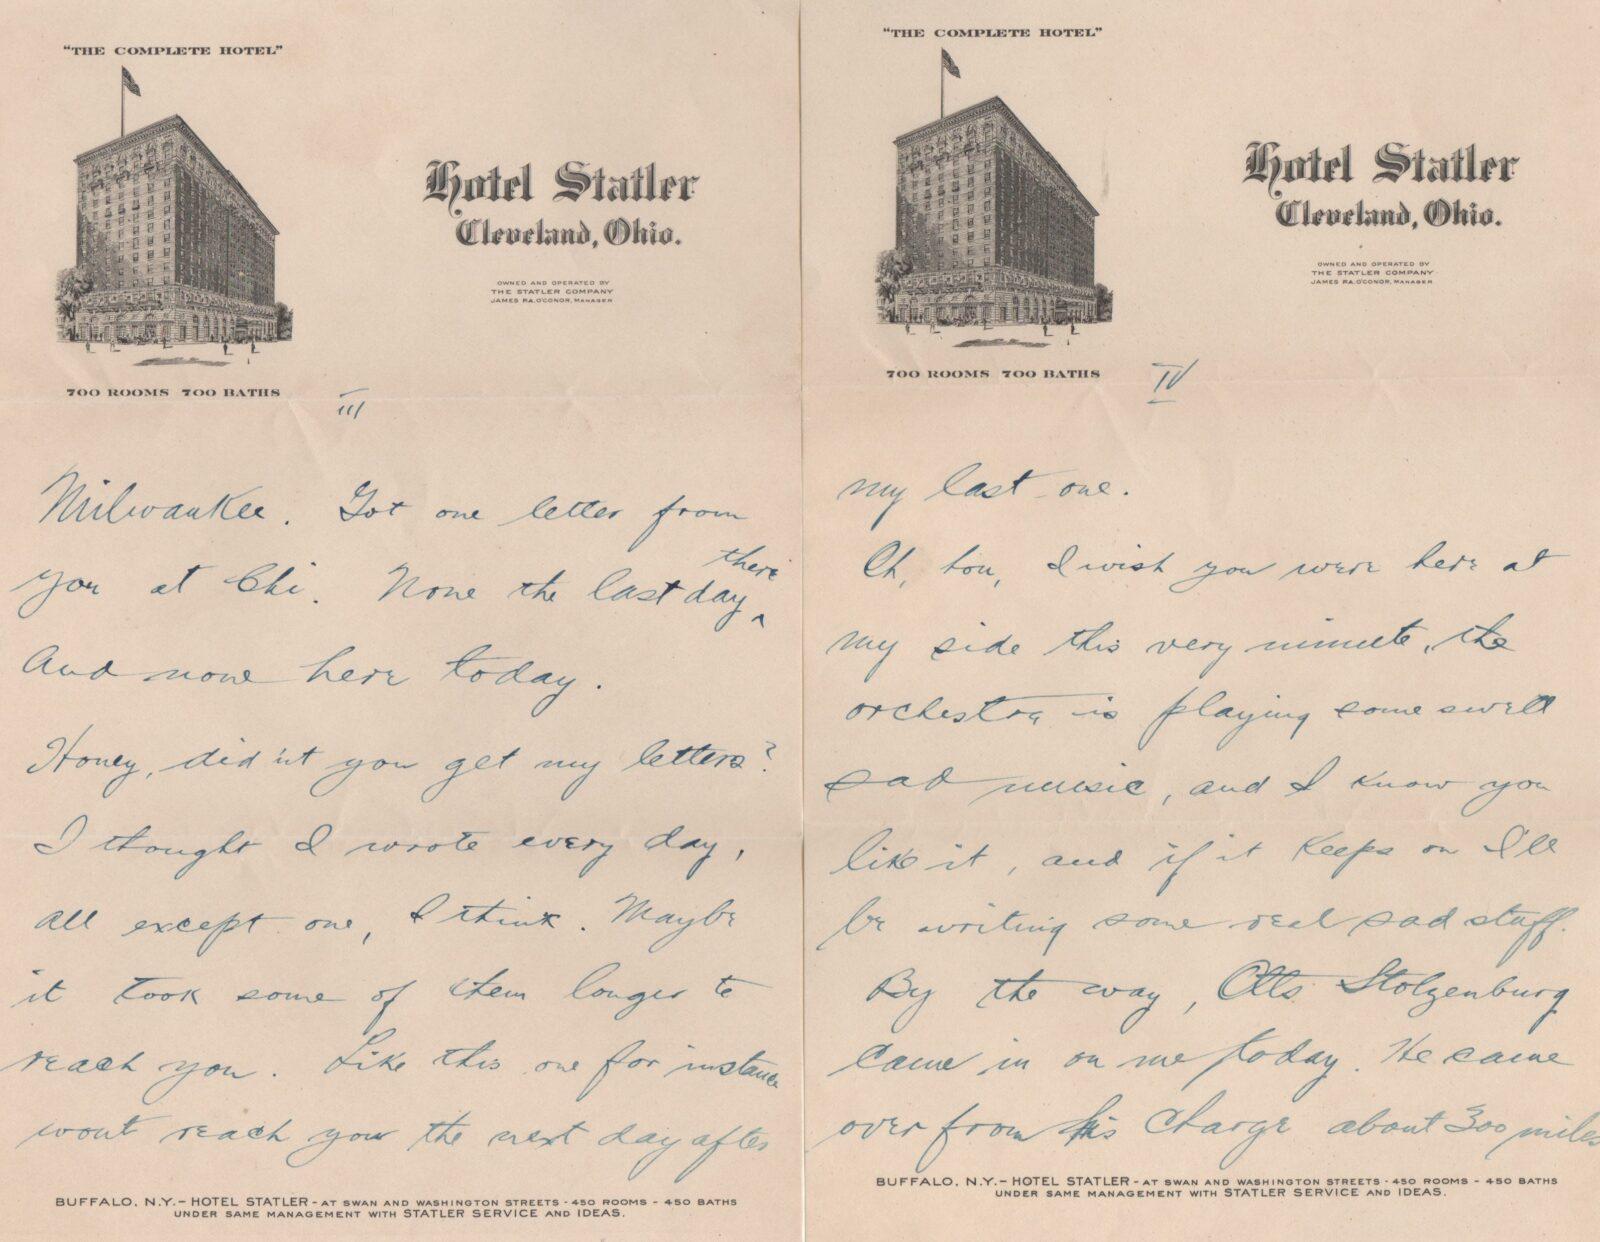 "THE COMPLETE HOTEL"
Hotel Statler
Cleveland, Ohio.
OWNED AND OPERATED BY
THE STATLER COMPANY
JAMES RA.O'CONOR, MANAGER
700 ROOMS 700 BATHS
III
Milwaukee. Got one letter from
you at Chi. None the last day there
And none here today.
Honey, did'nt you get my letters?
I thought I wrote every day,
all except one, I think. Maybe
it took some of them longer to
reach you. Like this one for instance
wont reach you the next day after
BUFFALO, N.Y. – HOTEL STATLER – AT SWAN AND WASHINGTON STREETS - 450 ROOMS - 450 BATHS
UNDER SAME MANAGEMENT WITH STATLER SERVICE AND IDEAS.
"THE COMPLETE HOTEL"
Hotel Statler
Cleveland, Ohio.
OWNED AND OPERATED BY
THE STATLER COMPANY
JAMES RA.O'CONOR, MANAGER
700 ROOMS 700 BATHS
IV
my last one.
Oh, hon, I wish you were here at
my side this very minute, the
orchestra is playing some swell
sad music, and I know you
like it, and if it keeps on I'll
be writing some real sad stuff.
By the way, Otto Stolzenburg
came in on me today. He came
over from his charge about 300 miles
BUFFALO, N.Y. – HOTEL STATLER – AT SWAN AND WASHINGTON STREETS - 450 ROOMS - 450 BATHS
UNDER SAME MANAGEMENT WITH STATLER SERVICE AND IDEAS.